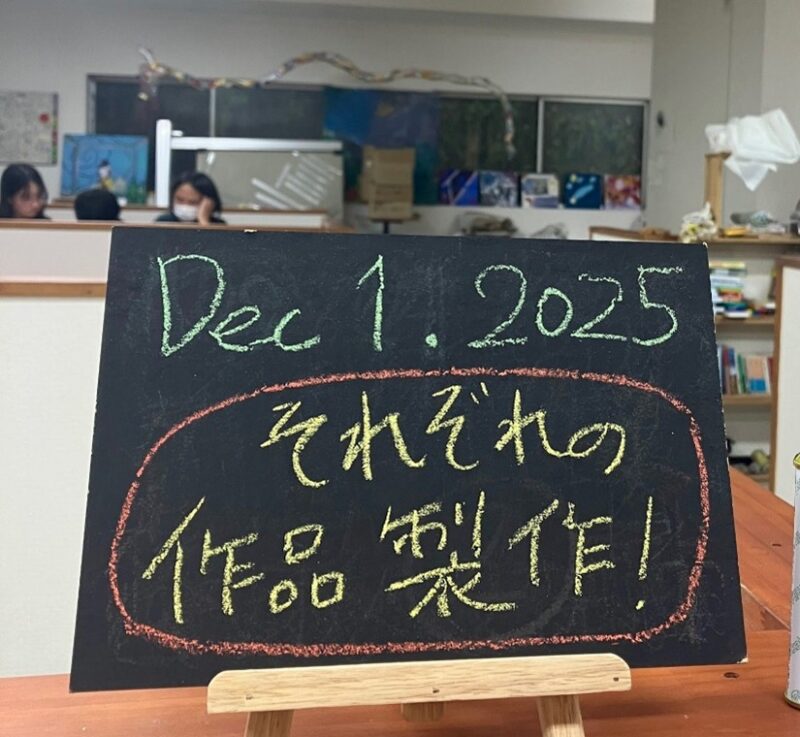 Dec 1. 2025
それぞれの
作品製作!